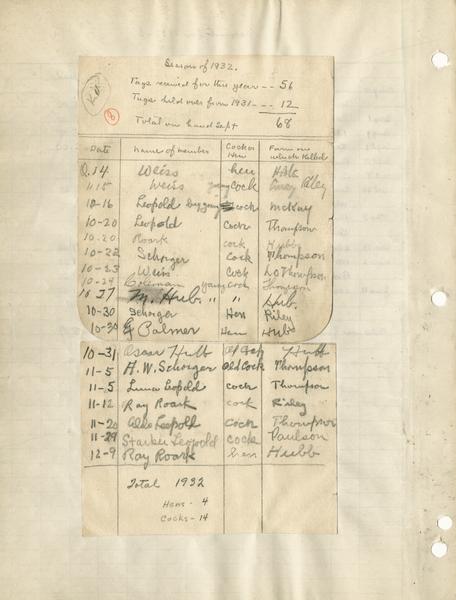 Season of 1932.
Tags received for this year -- 56
Tags held over from 1931 --- 12
Total on hand Sept 68
8
Date Name of member Cock or Hen Farm on which Killed
14 Weiss hen
Weiss young cock Riley
10-16 Leopold cock McKay
10-20 Leopold Cock Thompson
10-20 Roark cock Hubb
10-22 Schorger Cock Thompson
10-23 Weiss Cock Thompson
10-24 Coleman young cock Thompson
10-27 M. Hub. " " Hub.
10-30 Schorger Hen Riley
10-30 Palmer Hen Hub
10-31 Oscar Hubb Old Hubb
11-5 A.W. Schorger Old Cock Thompson
11-5 Luna Leopold cock Thompson
11-12 Ray Roark cock Riley
11-20 Aldo Leopold cock Thompson
11-29 Starker Leopold cock Paulson
12-9 Ray Roark hen Hubb
Total 1932
Hens - 4
Cocks - 14